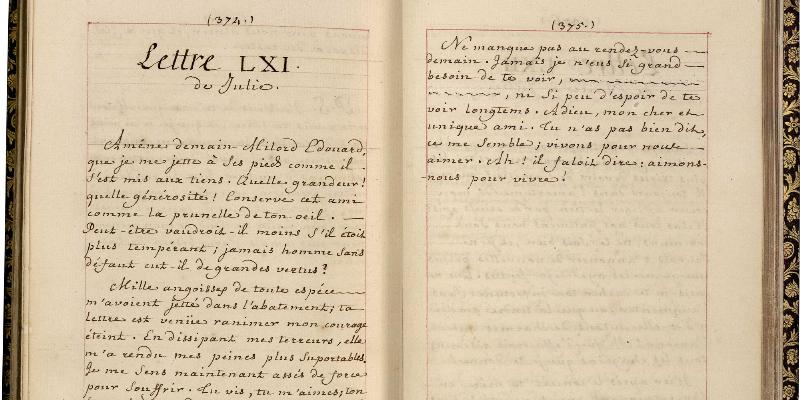 (374.)
Lettre LXI.
de Julie.
Amène demain Milord Edouard,
que je me jette à ses pieds comme il
s'est mis aux tiens. Quelle grandeur!
quelle générosité! Conserve cet ami
comme la prunelle de ton oeil.
Peut-être vaudroit-il moins s'il étoit
plus tempérant; jamais homme sans
défaut eut-il de grandes vertus?
Mille angoisses de toute espéce
m'avoient jetté dans l'abatement; ta
lettre est venüe ranimer mon courage
éteint. En dissipant mes terreurs, elle
m'a rendu mes peines plus suportables.
Je me sens maintenant assés de force
pour souffrir. Tu vis, tu m'aimes, ton
(375.)
Ne manque pas au rendez-vous
demain. Jamais je n'eus si grand
besoin de te voir,
, ni si peu d'espoir de te
voir longtems. Adieu, mon cher et
unique ami. Tu n'as pas bien dit,
ce me semble; vivons pour nous
aimer. Ah! il faloit dire: aimons-
nous pour vivre!